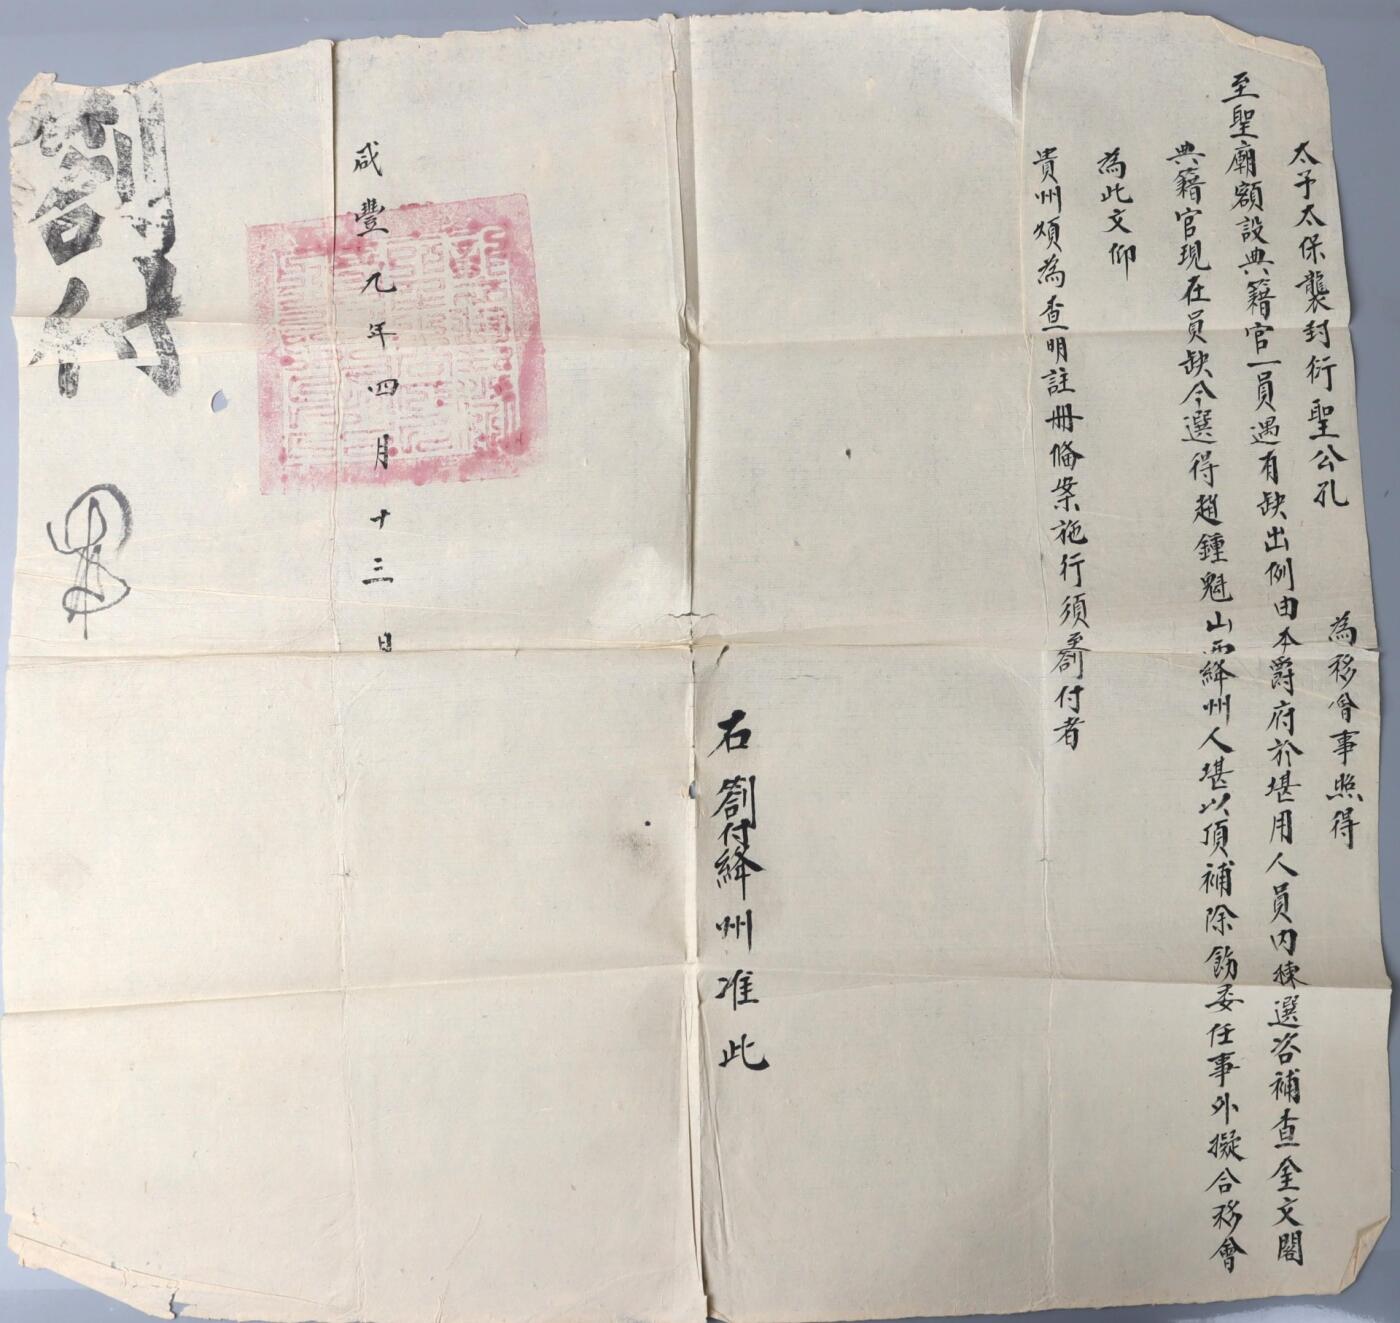 太子太保襲封衍聖公孔
為移會事照得
至聖廟額設典籍官一員遇有缺出例由本爵府於堪用人員内揀選咨補查奎文閣
典籍官現在員缺今選得趙鍾魁山西絳州人堪以頂補除飭委任事外擬合移會
為此文仰
貴州煩為查明註冊俻案施行須至劄付者
右劄付絳州准此
咸豐九年四月十三日
劄付